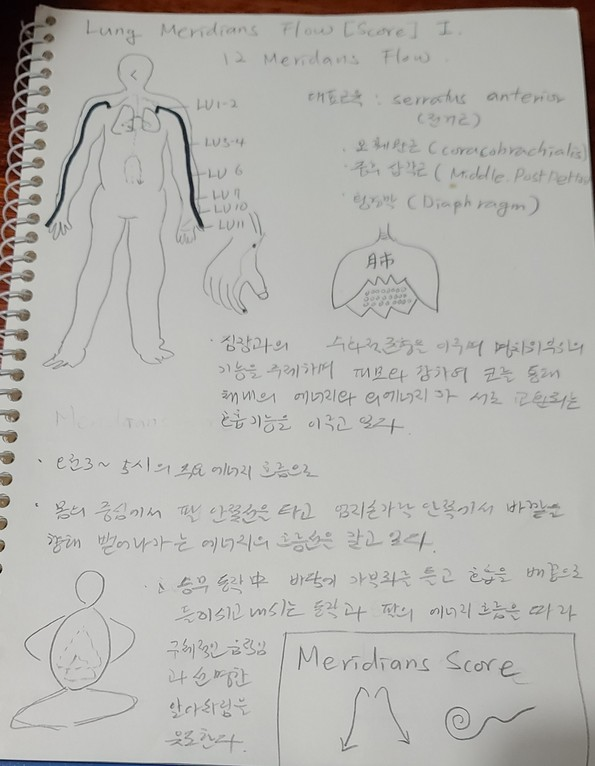 Lung Meridians Flow [Score] I.
12 Meridans Flow.
대표근육 : serratus anterior
(전거근)
LU1-2
· 오훼완근 (coracobrachialis)
LU3-4
LU 6
· 횡경막 (Diaphragm)
LU 7
LU10
LU11
肺
· 심장과의 이루며
기능을 주레하며 피모와 합하여 코를 통해
체내의 에너지와 외에너지가 서로 교환되는
호흡기능을 이루고 있다.
· 오전3~5시의 주요 에너지 흐름으로
· 몸의 중심에서 팔 안쪽선을 타고 엄지손가락 안쪽에서 바깥을
향해 뻗어나가는 에너지의 흐름선을 갖고 있다.
승무 동작 中 바닥에 가부좌를 틀고 호흡을 배꼽으로
들이쉬고 내쉬는 동작과 팔의 에너지 흐름을 따라
구체적인 움직임
과 선명한
알아차림을
유도한다.
Meridians Score